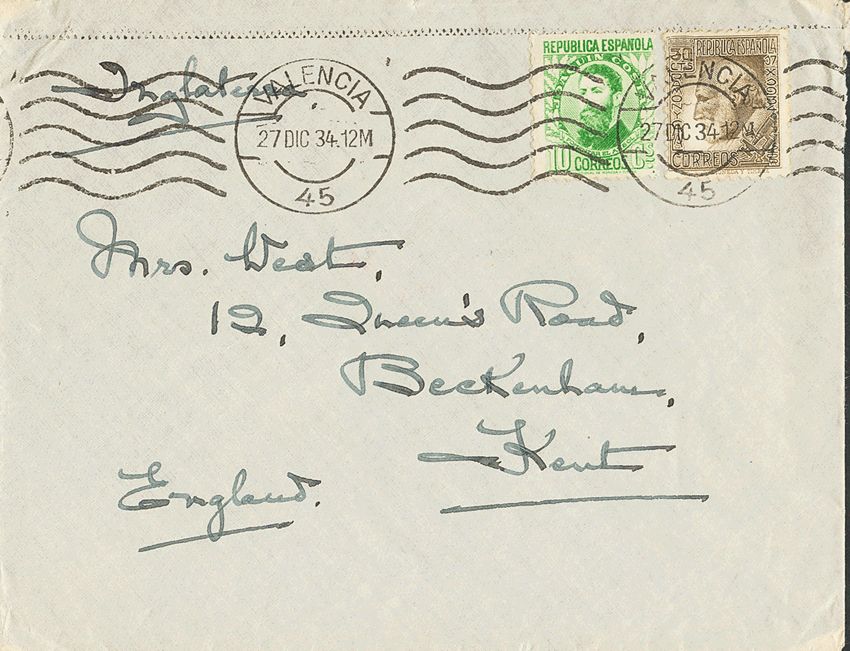 Inglaterra
VALENCIA
27 DIC 34.12M
45
REPUBLICA ESPAÑOLA
JOAQUIN COSTA
10 CORREOS CTS
REPUBLICA ESPAÑOLA
30
CORREOS
VALENCIA
27 DIC 34.12M
45
Mrs. West,
12, Queen's Road,
Beckenham,
Kent
England.